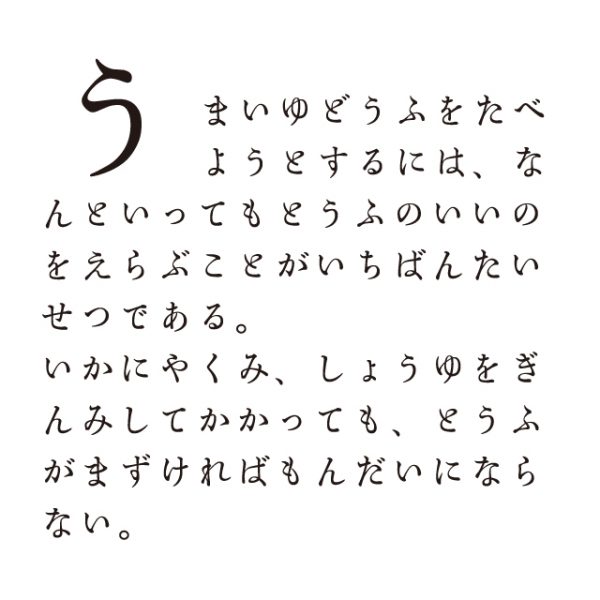 うまいゆどうふをたべ
ようとするには、な
んといってもとうふのいいの
をえらぶことがいちばんたい
せつである。
いかにやくみ、しょうゆをぎ
んみしてかかっても、とうふ
がまずければもんだいになら
ない。